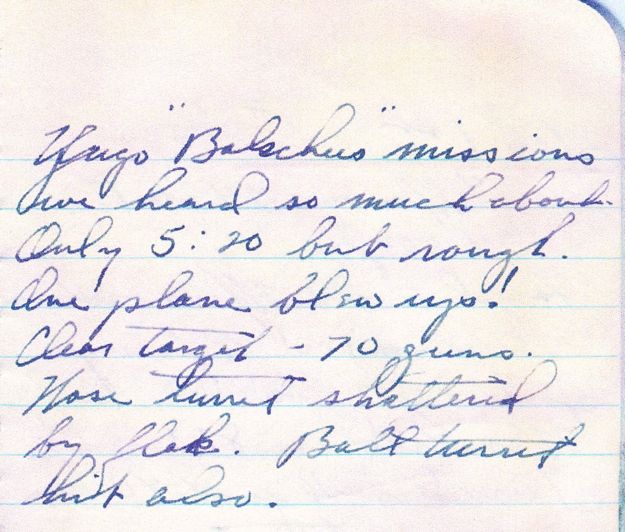 Yugo "Balschus" missions
we heard so much about.
Only 5:20 but rough.
One plane blew up!
Clear target - 70 guns.
Nose turret shattered
by flak. Ball turret
hit also.